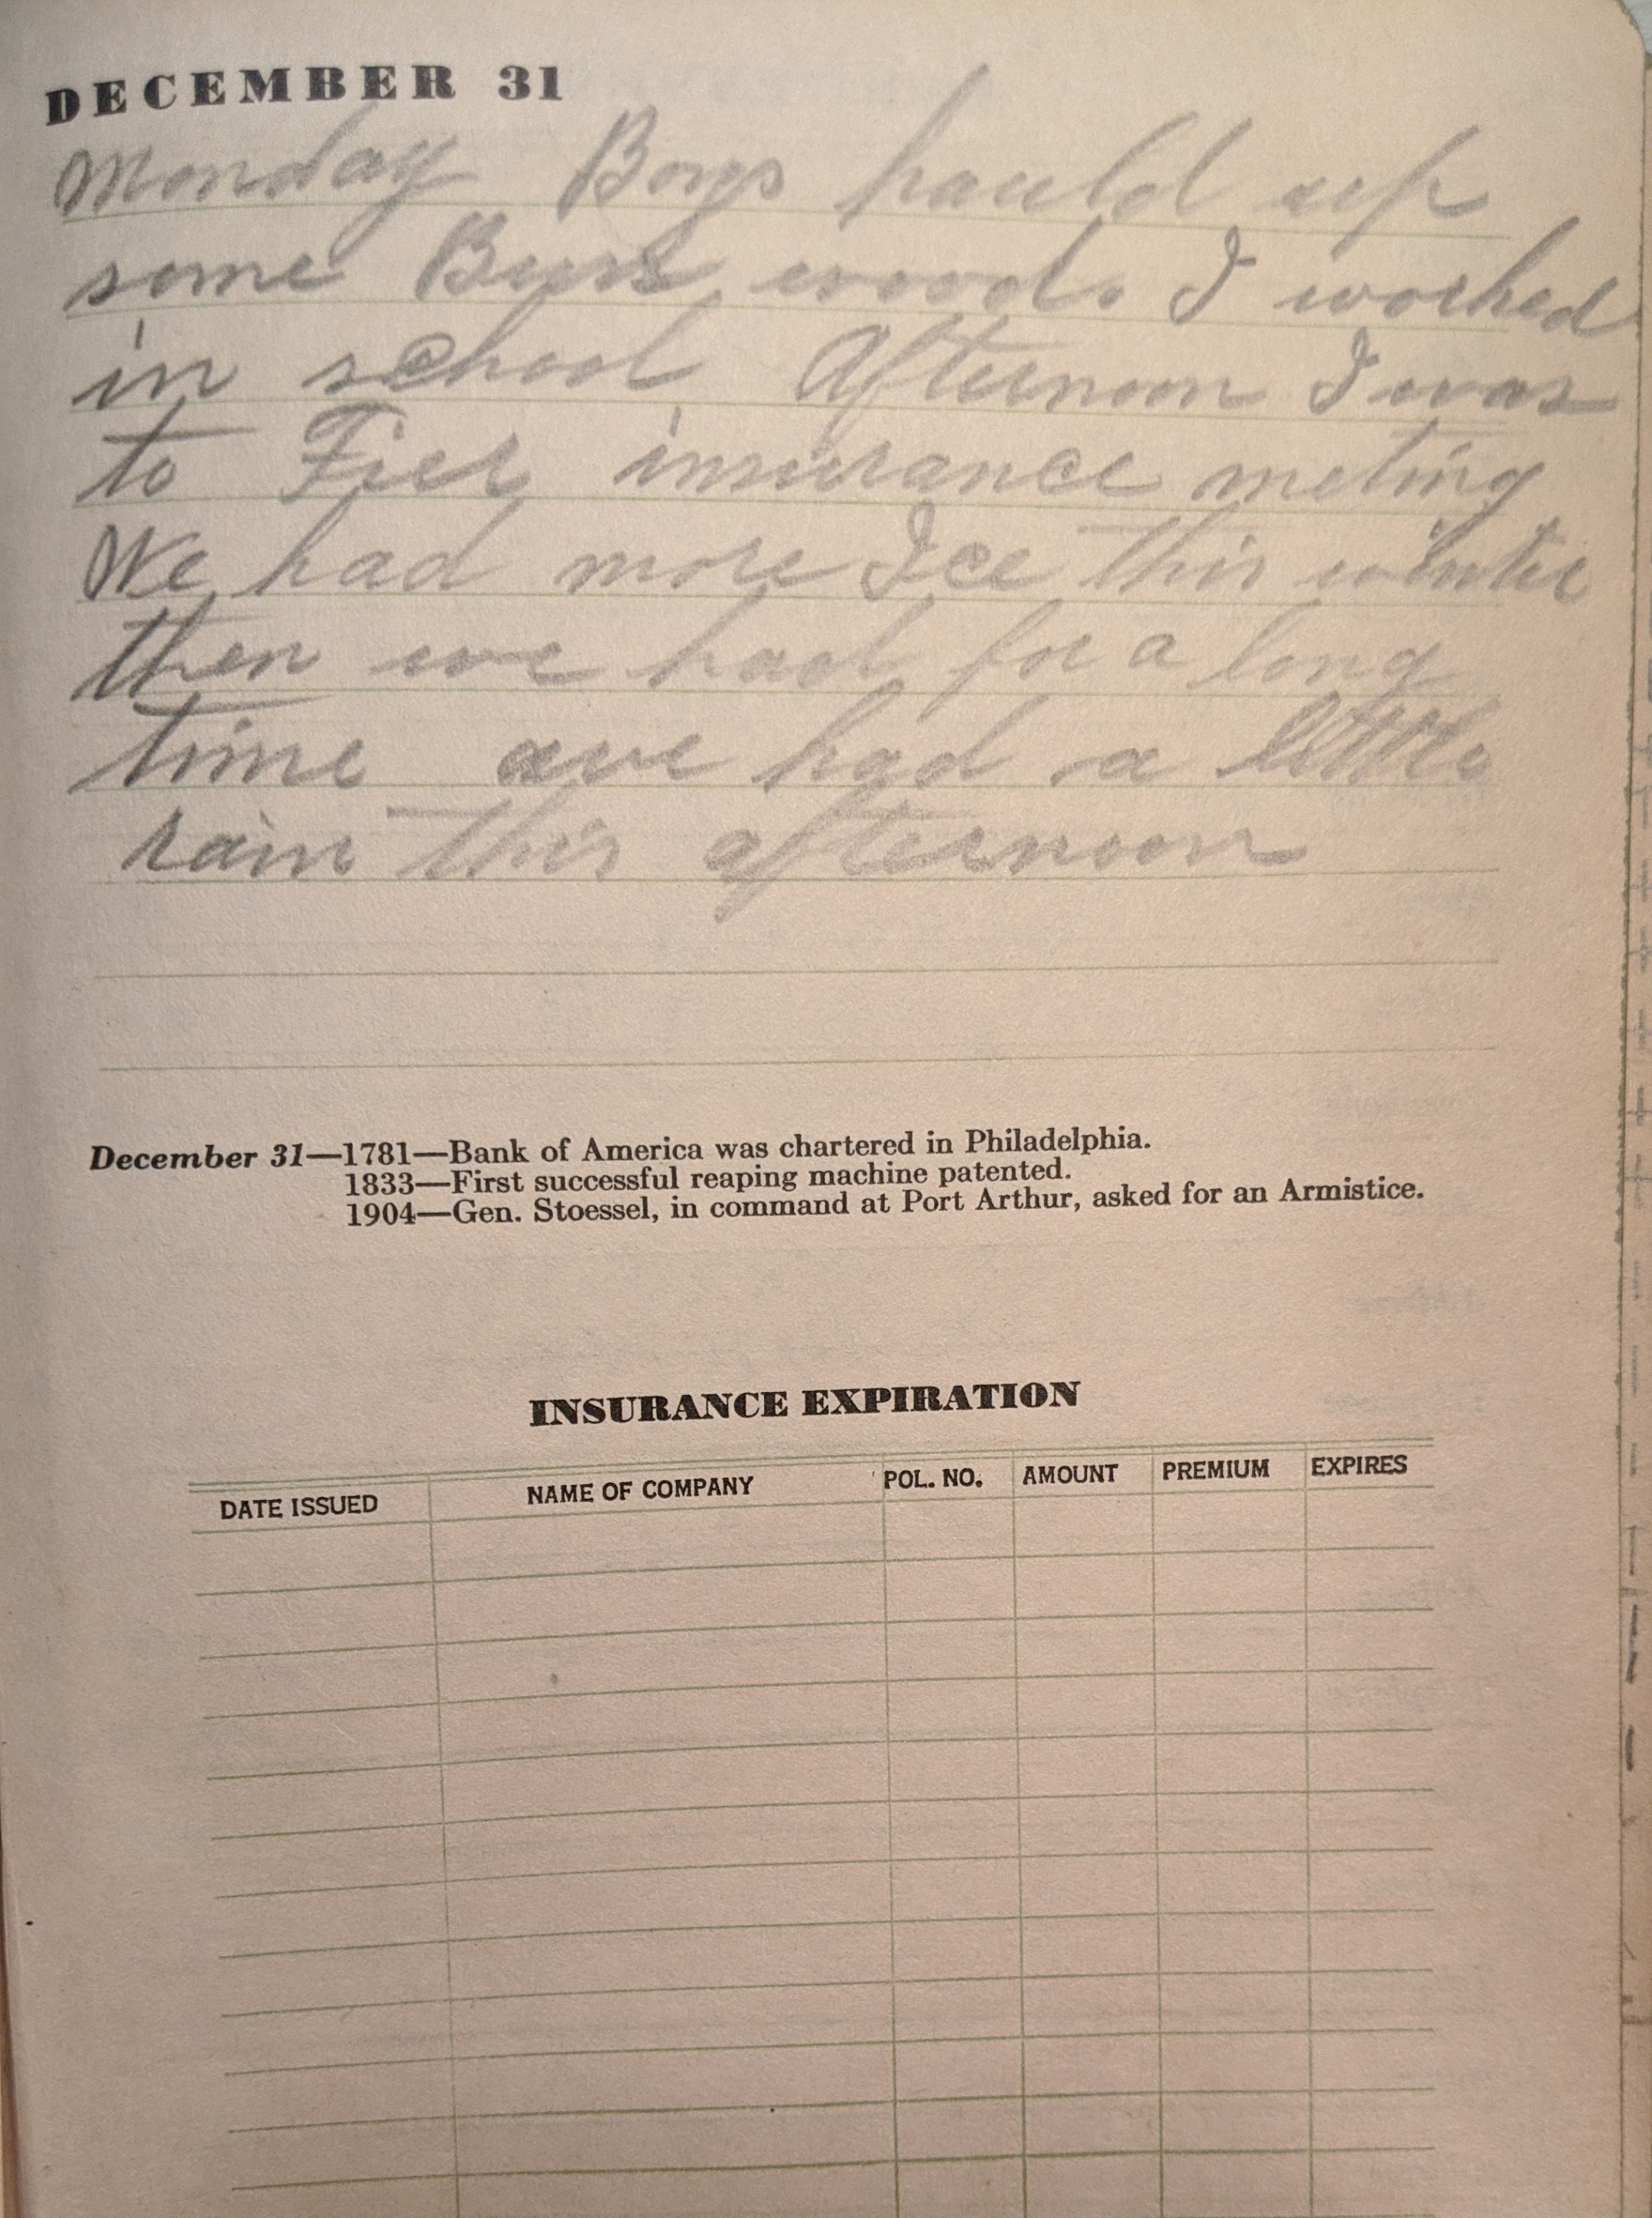 DECEMBER 31
Monday Boys hauld up
some woods I worked
in school Afternoon I was
to Fier insurance meting
We had more Ice this winter
then we had for a long
time had a little
rain this afternoon
December 31—1781—Bank of America was chartered in Philadelphia.
1833—First successful reaping machine patented.
1904—Gen. Stoessel, in command at Port Arthur, asked for an Armistice.
INSURANCE EXPIRATION
DATE ISSUED NAME OF COMPANY POL. NO. AMOUNT PREMIUM EXPIRES